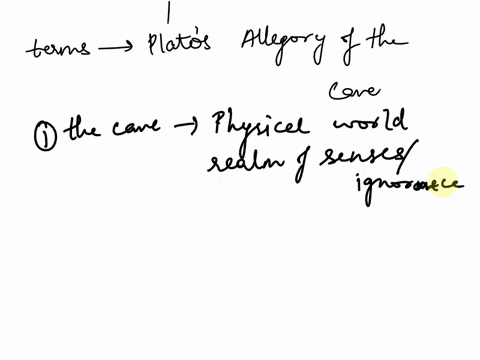 terms → Plato's Allegory of the
Cave
① the cave → Physical world
realm of senses/
ignorance